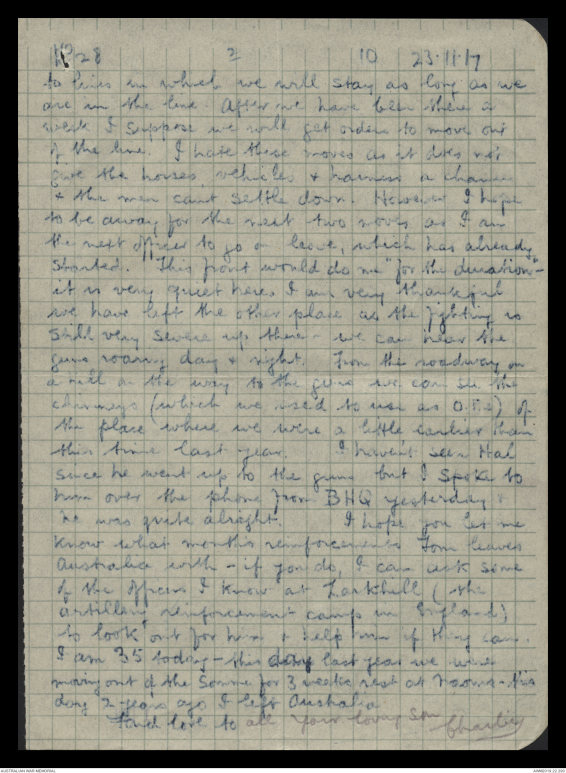 No 28 2 10 23.11.17
to lines in which we will stay as long as we
are in the line. After we have been there a
week I suppose we will get orders to move out
of the line. I hate these moves as it does not
give the horses, vehicles & harness a chance
& the men cant settle down. However I hope
to be away for the next two moves as I am
the next officer to go on leave, which has already
started. This front would do me "for the duration" -
it is very quiet here. I am very thankful
we have left the other place as the fighting is
still very severe up there - we can hear the
guns roaring day & night. From the roadway on
a hill on the way to the guns we can see the
chimneys (which we used to use as O.P.s) of
the place where we were a little earlier than
this time last year. I haven't seen Hal
since he went up to the guns but I spoke to
him over the phone from BHQ yesterday &
he was quite alright. I hope you let me
know what months reinforcements Tom leaves
Australia with - if you do, I can ask some
of the officers I know at Larkhill (the
artillery reinforcement camp in England)
to look out for him & help him if they can.
I am 35 today - this day last year we were
moving out of the Somme for 3 weeks rest at - this
day 2 years ago I left Australia
Fond love to all your loving son Charlie
AUSTRALIAN WAR MEMORIAL